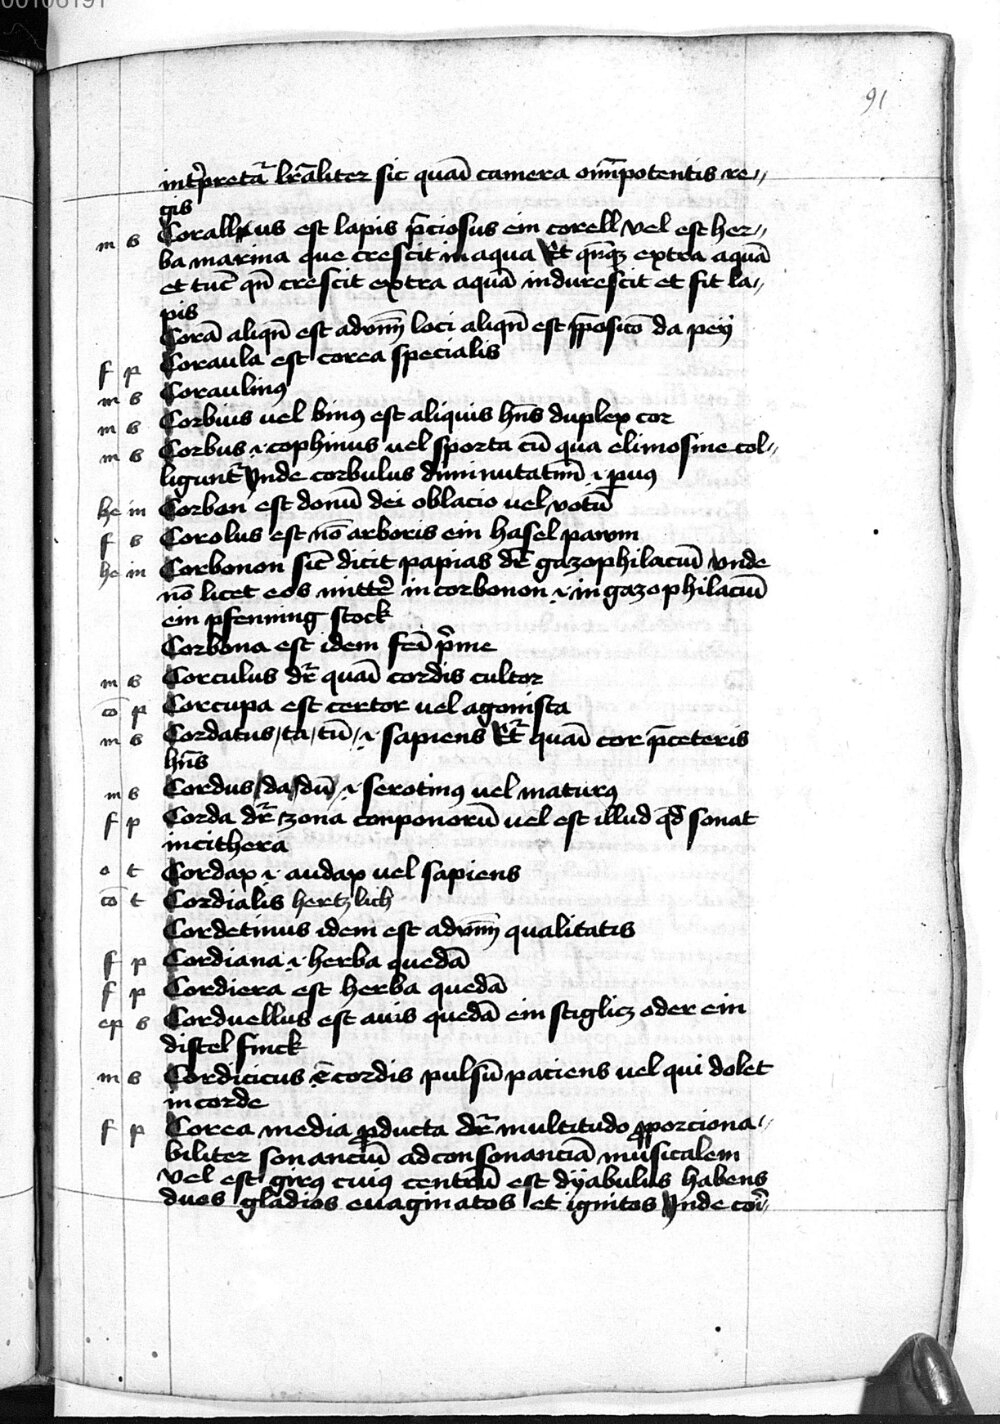 00106191
91
int͛pretat̄ lr̄aliter sic quaȝi camera om̄ipotentis re⸗
gis
m s Corallius est lapis p̄ciosus ein corell vel est her⸗
ba marina que crescit in aqua Et qn̄qȝ extra aquā
et tūc qn̄ crescit extra aquā indurescit et fit la⸗
pis
Corā aliqn̄ est adv̄m loci aliqn̄ est p̄posicō da pey
f p Coraula est corea specialis
m s Coraulinꝰ
m s Corbius vel binꝰ est aliquis hn̄s duplex cor
m s Corbus .i. cophinus vel sporta cū qua elimosine col⸗
ligunt̄ Vnde corbulus diminutatiū .i. puus
he in Corban est donū dei oblacio vel votū
f s Corolus est nō arboris ein hasel pawm
he in Corbonon sic̄ dicit papias dr̄ gazophilaciū vnde
nō licet eos mitte͛ in corbonon .i. in gazophilaciū
ein pfenning stock
Corbona est idem fēi p͛me
m s Corculus dr̄ quaȝi cordis cultor
cō p Corcupa est certor vel agonista
m s Cordatus/ta/tū/ .i. sapiens Et dr̄ quaȝi cor p̄ceteris
hn̄s
m s Cordus/da/dū/ .i. serotinꝰ vel maturꝰ
f p Corda dr̄ zona conponorū vel est illud qd̄ sonat
in cithera
o t Cordax .i. audax vel sapiens
cō t Cordialis hertzlich
Cordetinus idem est adv̄m qualitatis
f p Cordiana .i. herba quedā
f p Cordiera est herba quedā
ep s Corduellus est auis quedā ein stiglicz oder ein
distel finck
m s Cordicicus ē cordis pulsū paciens vel qui dolet
in corde
f p Corea media ꝓducta dr̄ multitudo ꝓporciona⸗
biliter sonanciū ad consonanciā musicalem
vel est girꝰ cuiꝰ centrū est dyabulus habens
duos gladios euaginatos et ignitos Vnde cor̄⸗